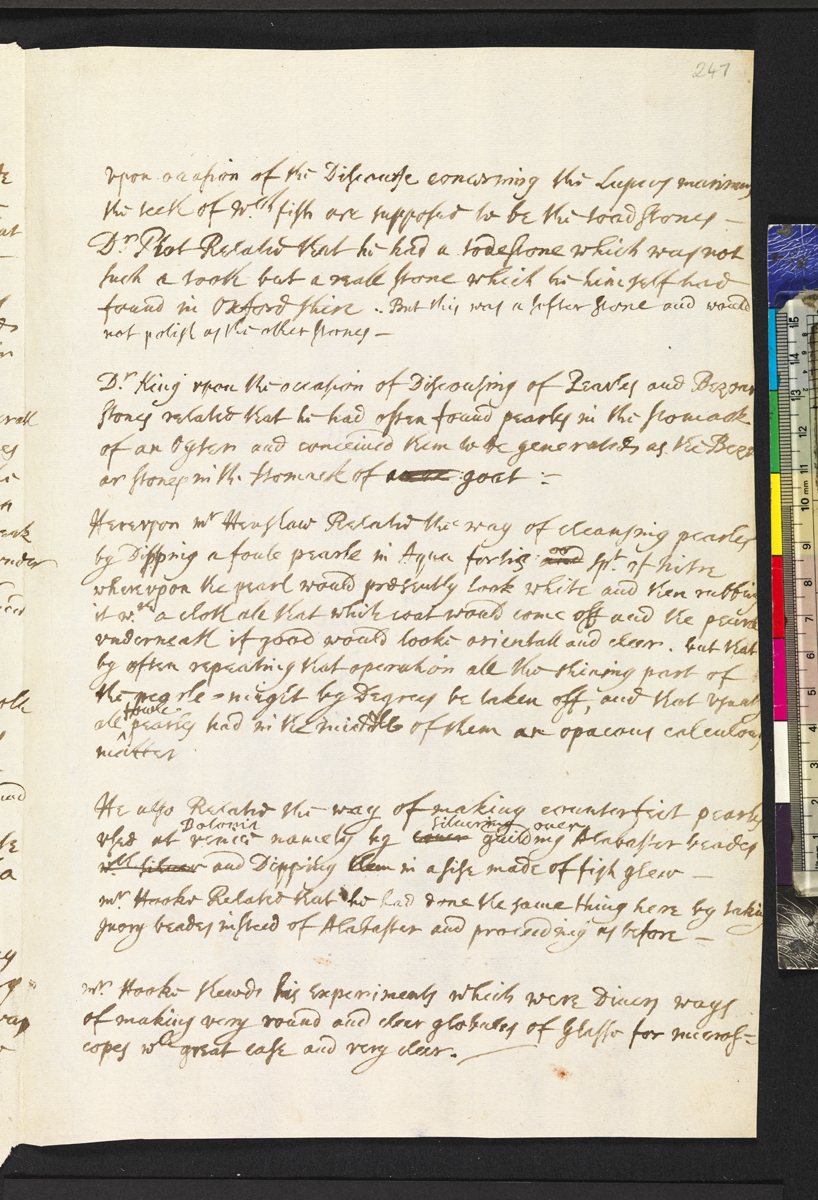 247
upon occasion of the Discourse concerning the Lupus marinus
the teeth of wch fish are supposed to be the toad stones –
Dr Plot Related that he had a todestone which was not
such a tooth but a reall stone which he himself had
found in Oxford shire. But this was a softer stone and would
not polish as the other stones –
Dr King upon the occasion of Discoursing of Pearles and Bezoar
stones related that he had often found pearles in the stomack
of an Oyster and conceiued them to be generated as the Bezo
ar stones in the stomack of goat :–
Hereupon mr Henshaw Related the way of cleansing pearles
by Dipping a foule pearle in Aqua fortis or spt of nitre
whereupon the pearl would presently look white and then rubbing
it wth a cloth ale that white coat would come off and the pearle
underneath if good would looke orientall and cleer. but that
by often repeating that operation all the shining part of
the pearle - might by Degrees be taken off, and that usually
ale foule pearles had in the middle of them an opacous calculous
matter
He also Related the way of making counterfeit pearles
Silvering over
used at venice namely by guilding Alabaster beades
and Dipping them in a sise made of fish glew –
mr Hooke Related that he had done the same thing here by taking
Juory beades insteed of Alabaster and proceeding as before –
mr Hooke shewd his Experiments which were Diuers ways
of making very round and cleer globules of Glasse for micros=
copes wth great ease and very cleer.
10 mm